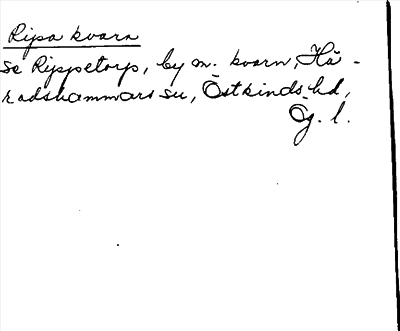 Ripsa kvarn
se Rippetorp, by m. kvarn, Hä-
radshammars sn, Östkinds hd,
Ög. l.